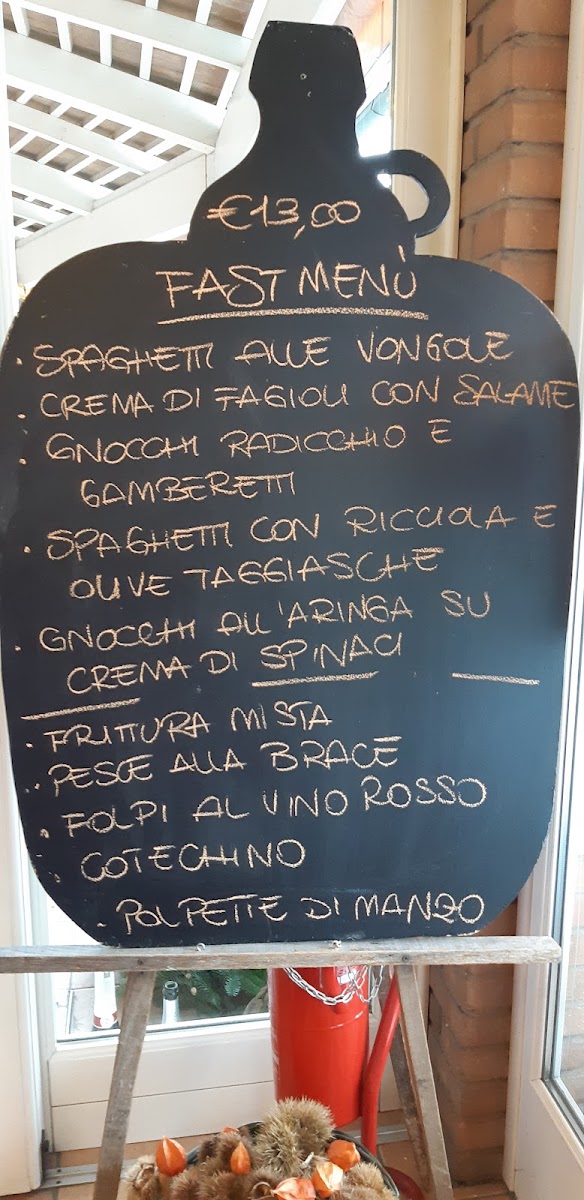 €13,00
FAST MENÙ
· SPAGHETTI ALLE VONGOLE
· CREMA DI FAGIOLI CON SALAME
· GNOCCHI RADICCHIO E
GAMBERETTI
· SPAGHETTI CON RICCIOLA E
OLIVE TAGGIASCHE
· GNOCCHI ALL'ARINGA SU
CREMA DI SPINACI
· FRITTURA MISTA
· PESCE ALLA BRACE
· FOLPI AL VINO ROSSO
· COTECHINO
· POLPETTE DI MANZO